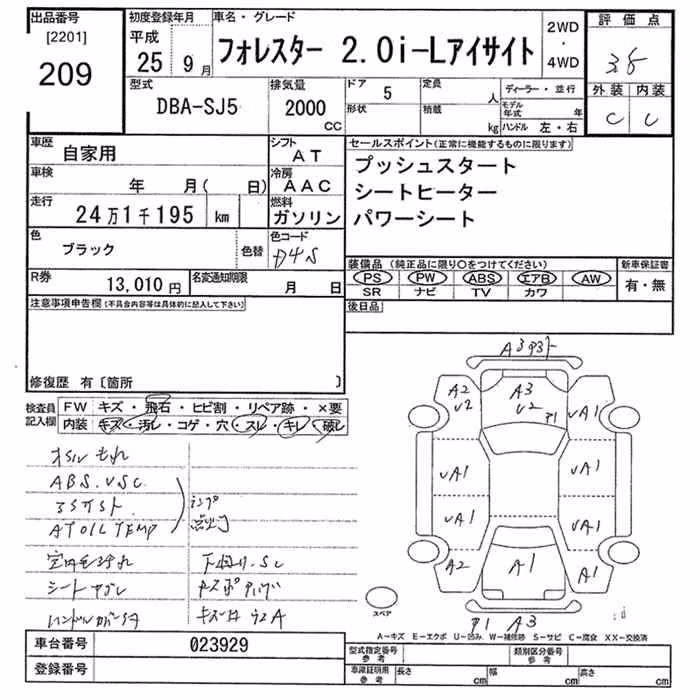 出品番号
[2201]
209
初度登録年月
平成
25年 9月
車名・グレード
フォレスター 2.0i-Lアイサイト
2WD
・
4WD
評価点
3.5
外装 内装
C C
型式
DBA-SJ5
排気量
2000
CC
ドア 5
形状
定員
人
積載
kg
ディーラー・並行
モデル年式 年
ハンドル 左・右
車歴
自家用
シフト
AT
車検
年 月( 日)
冷房
AAC
走行
24万1千195 km
燃料
ガソリン
色
ブラック
色替
色コード
D4S
R券
13,010円
名変通知期限
月 日
セールスポイント(正常に機能するものに限ります)
プッシュスタート
シートヒーター
パワーシート
装備品 (純正品に限り○をつけてください)
PS PW ABS エアB AW
SR ナビ TV カワ
新車保証書
有・無
後日品
注意事項申告欄(不具合内容等は具体的に記入して下さい)
修復歴 有〔箇所 〕
検査員記入欄
FW キズ・飛石・ヒビ割・リペア跡・×要
内装 キズ・汚レ・コゲ・穴・スレ・キレ・破レ
オイルもれ
ABS.VSC
AT OIL TEMP
ランプ
点灯
下廻り.SC
A3
A2
U2
A3
U2
P1
UA1
UA1
UA1
UA1
UA1
A2
A1
A1
スペア
P1 A3
A-キズ E-エクボ U-凹み W-補修跡 S-サビ C-腐食 XX-交換済
車台番号
023929
登録番号
型式指定番号
参考
類別区分番号
参考
車庫証明用
参考
長さ cm
幅 cm
高さ cm